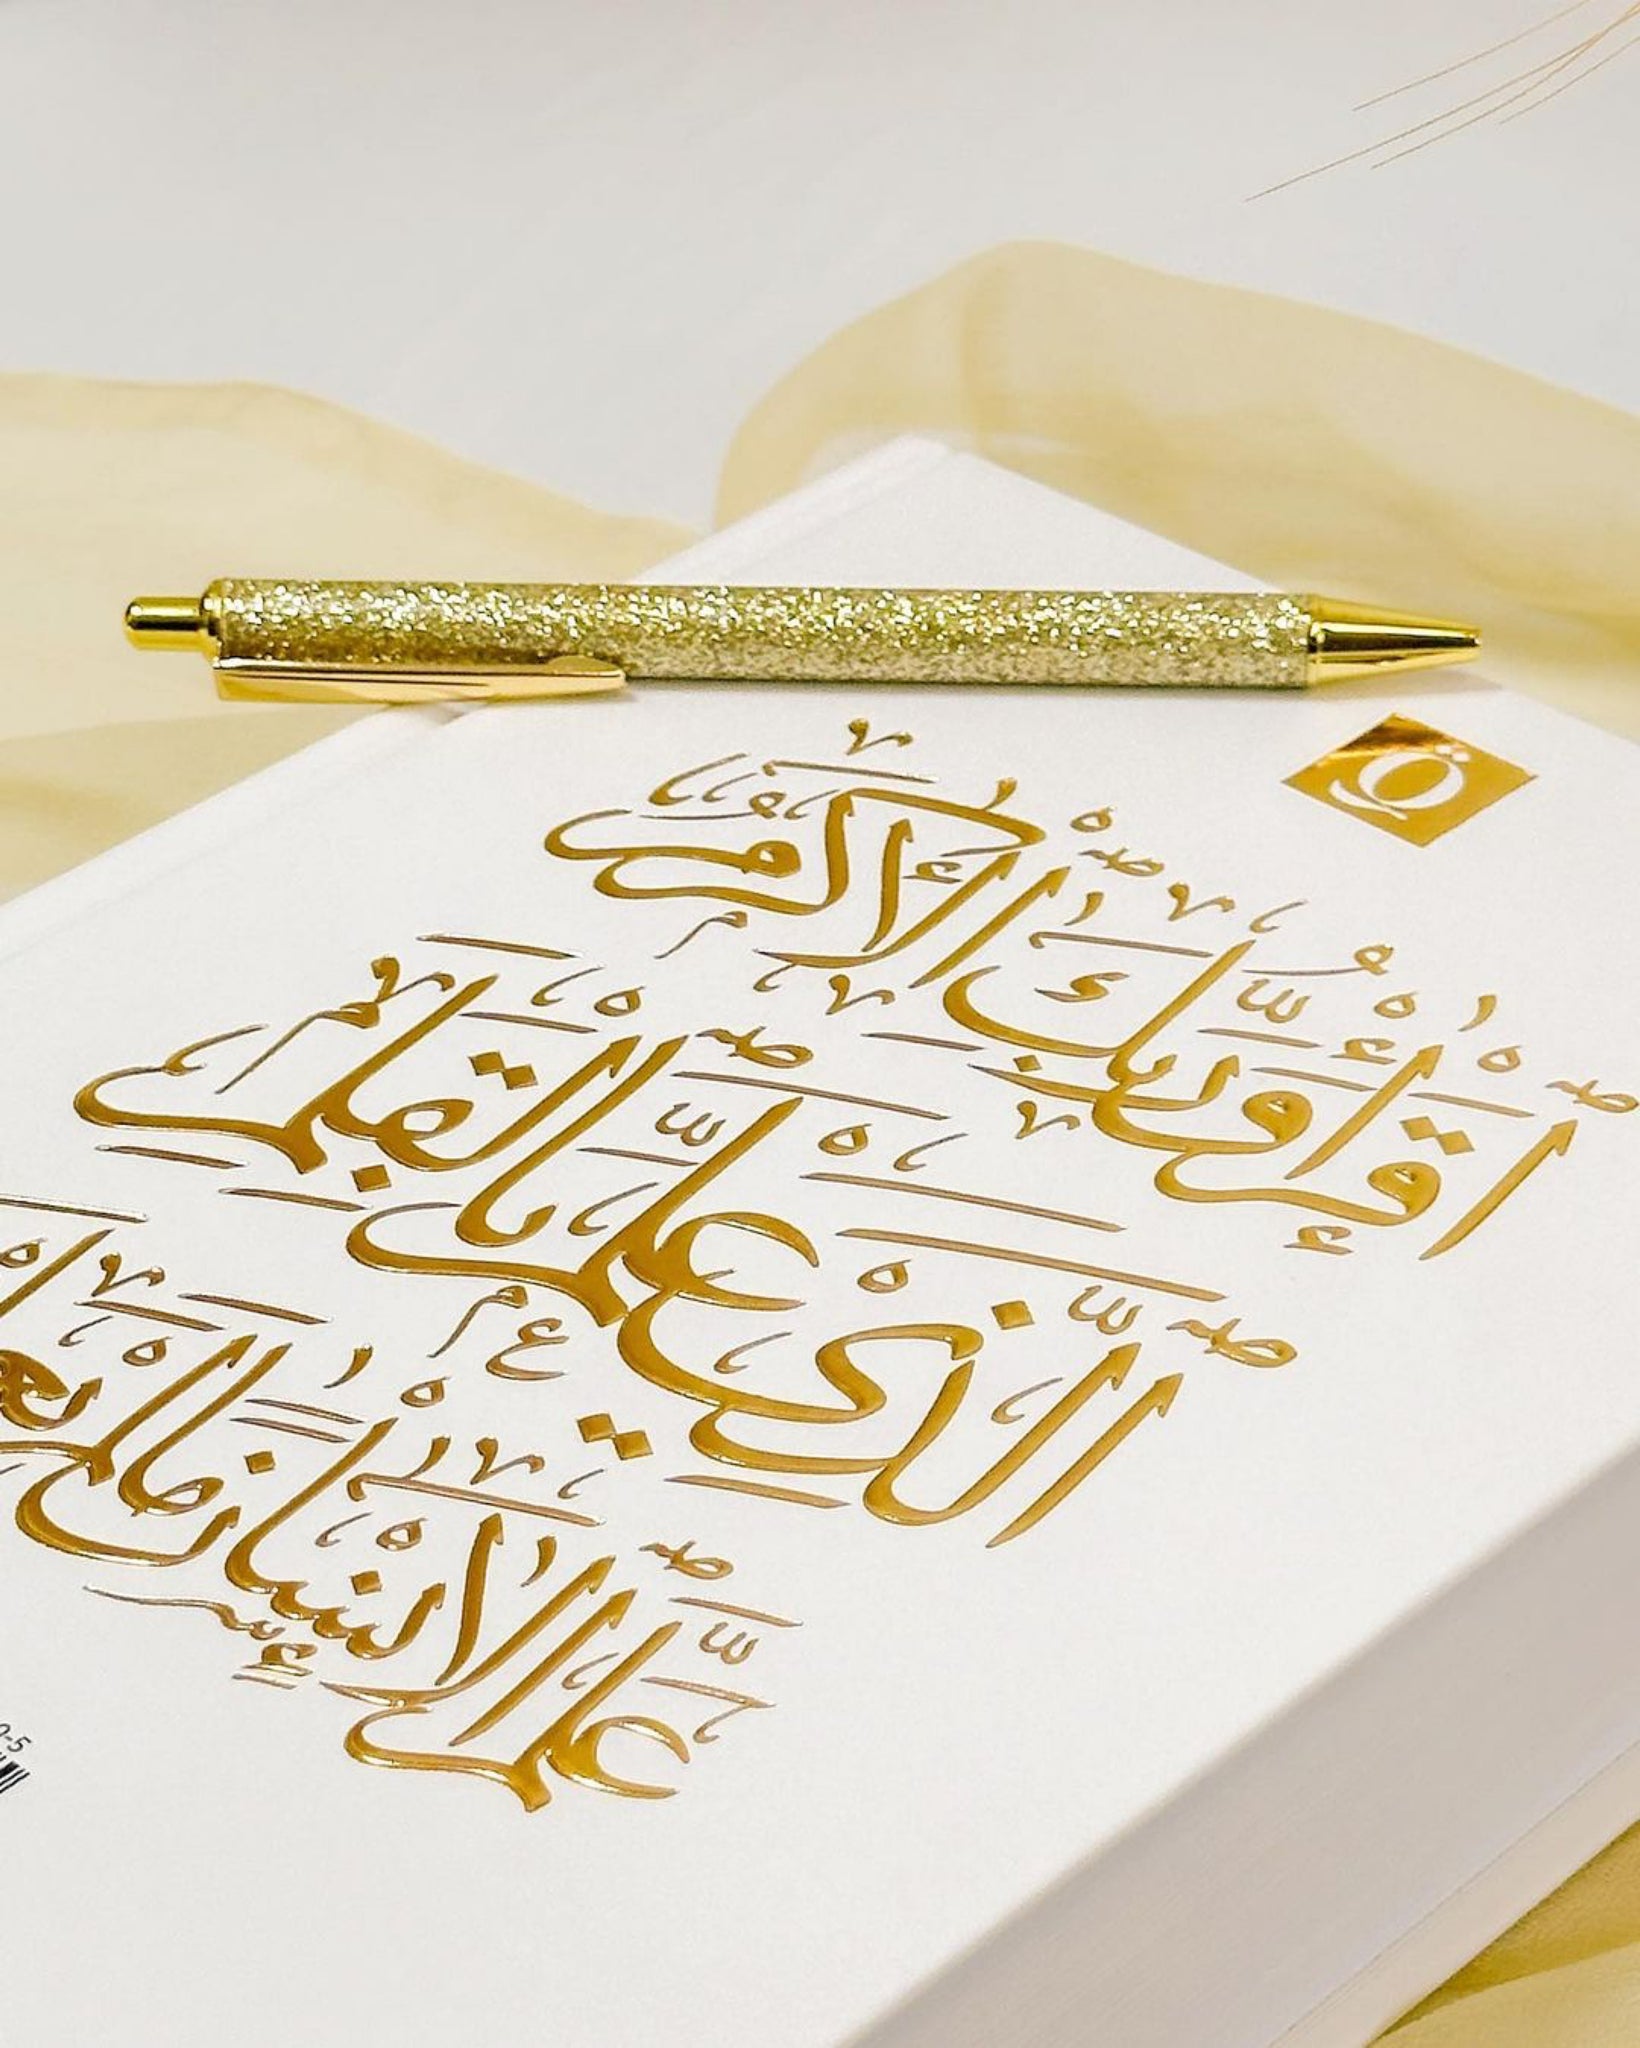 اقْرَأْ وَرَبُّكَ الْأَكْرَمُ
الَّذِي عَلَّمَ بِالْقَلَمِ
عَلَّمَ الْإِنْسَانَ مَا لَمْ
0-5